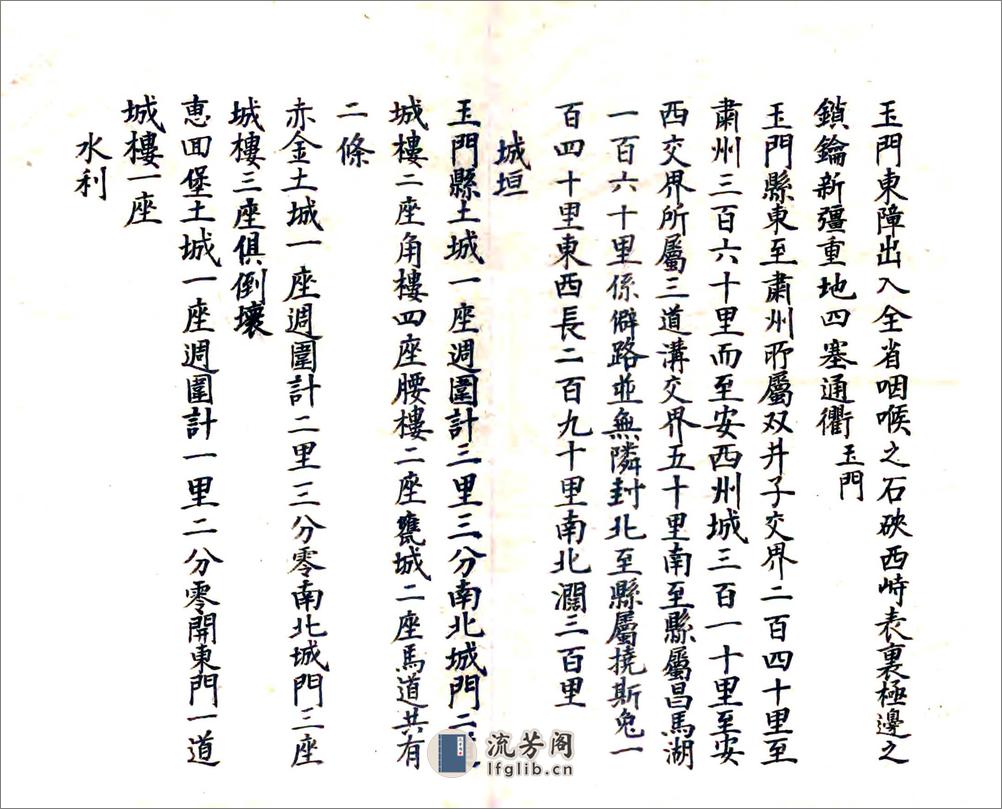 玉門東障出入全省咽喉之石硤西峙表裏極邊之
鎖鑰新彊重地四塞通衢 玉門
玉門縣東至肅州所屬双井子交界二百四十里至
肅州三百六十里而至安西州城三百一十里至安
西交界所屬三道溝交界五十里南至縣屬昌馬湖
一百六十里係僻路並無隣封北至縣屬撓斯兔一
百四十里東西長二百九十里南北濶三百里
城垣
玉門縣土城一座週圍計三里三分南北城門二
城樓二座角樓四座腰樓二座甕城二座馬道共有
二條
赤金土城一座週圍計二里三分零南北城門三座
城樓三座俱倒壞
惠回堡土城一座週圍計一里二分零開東門一道
城樓一座
水利
流芳阁
lfglib.cn